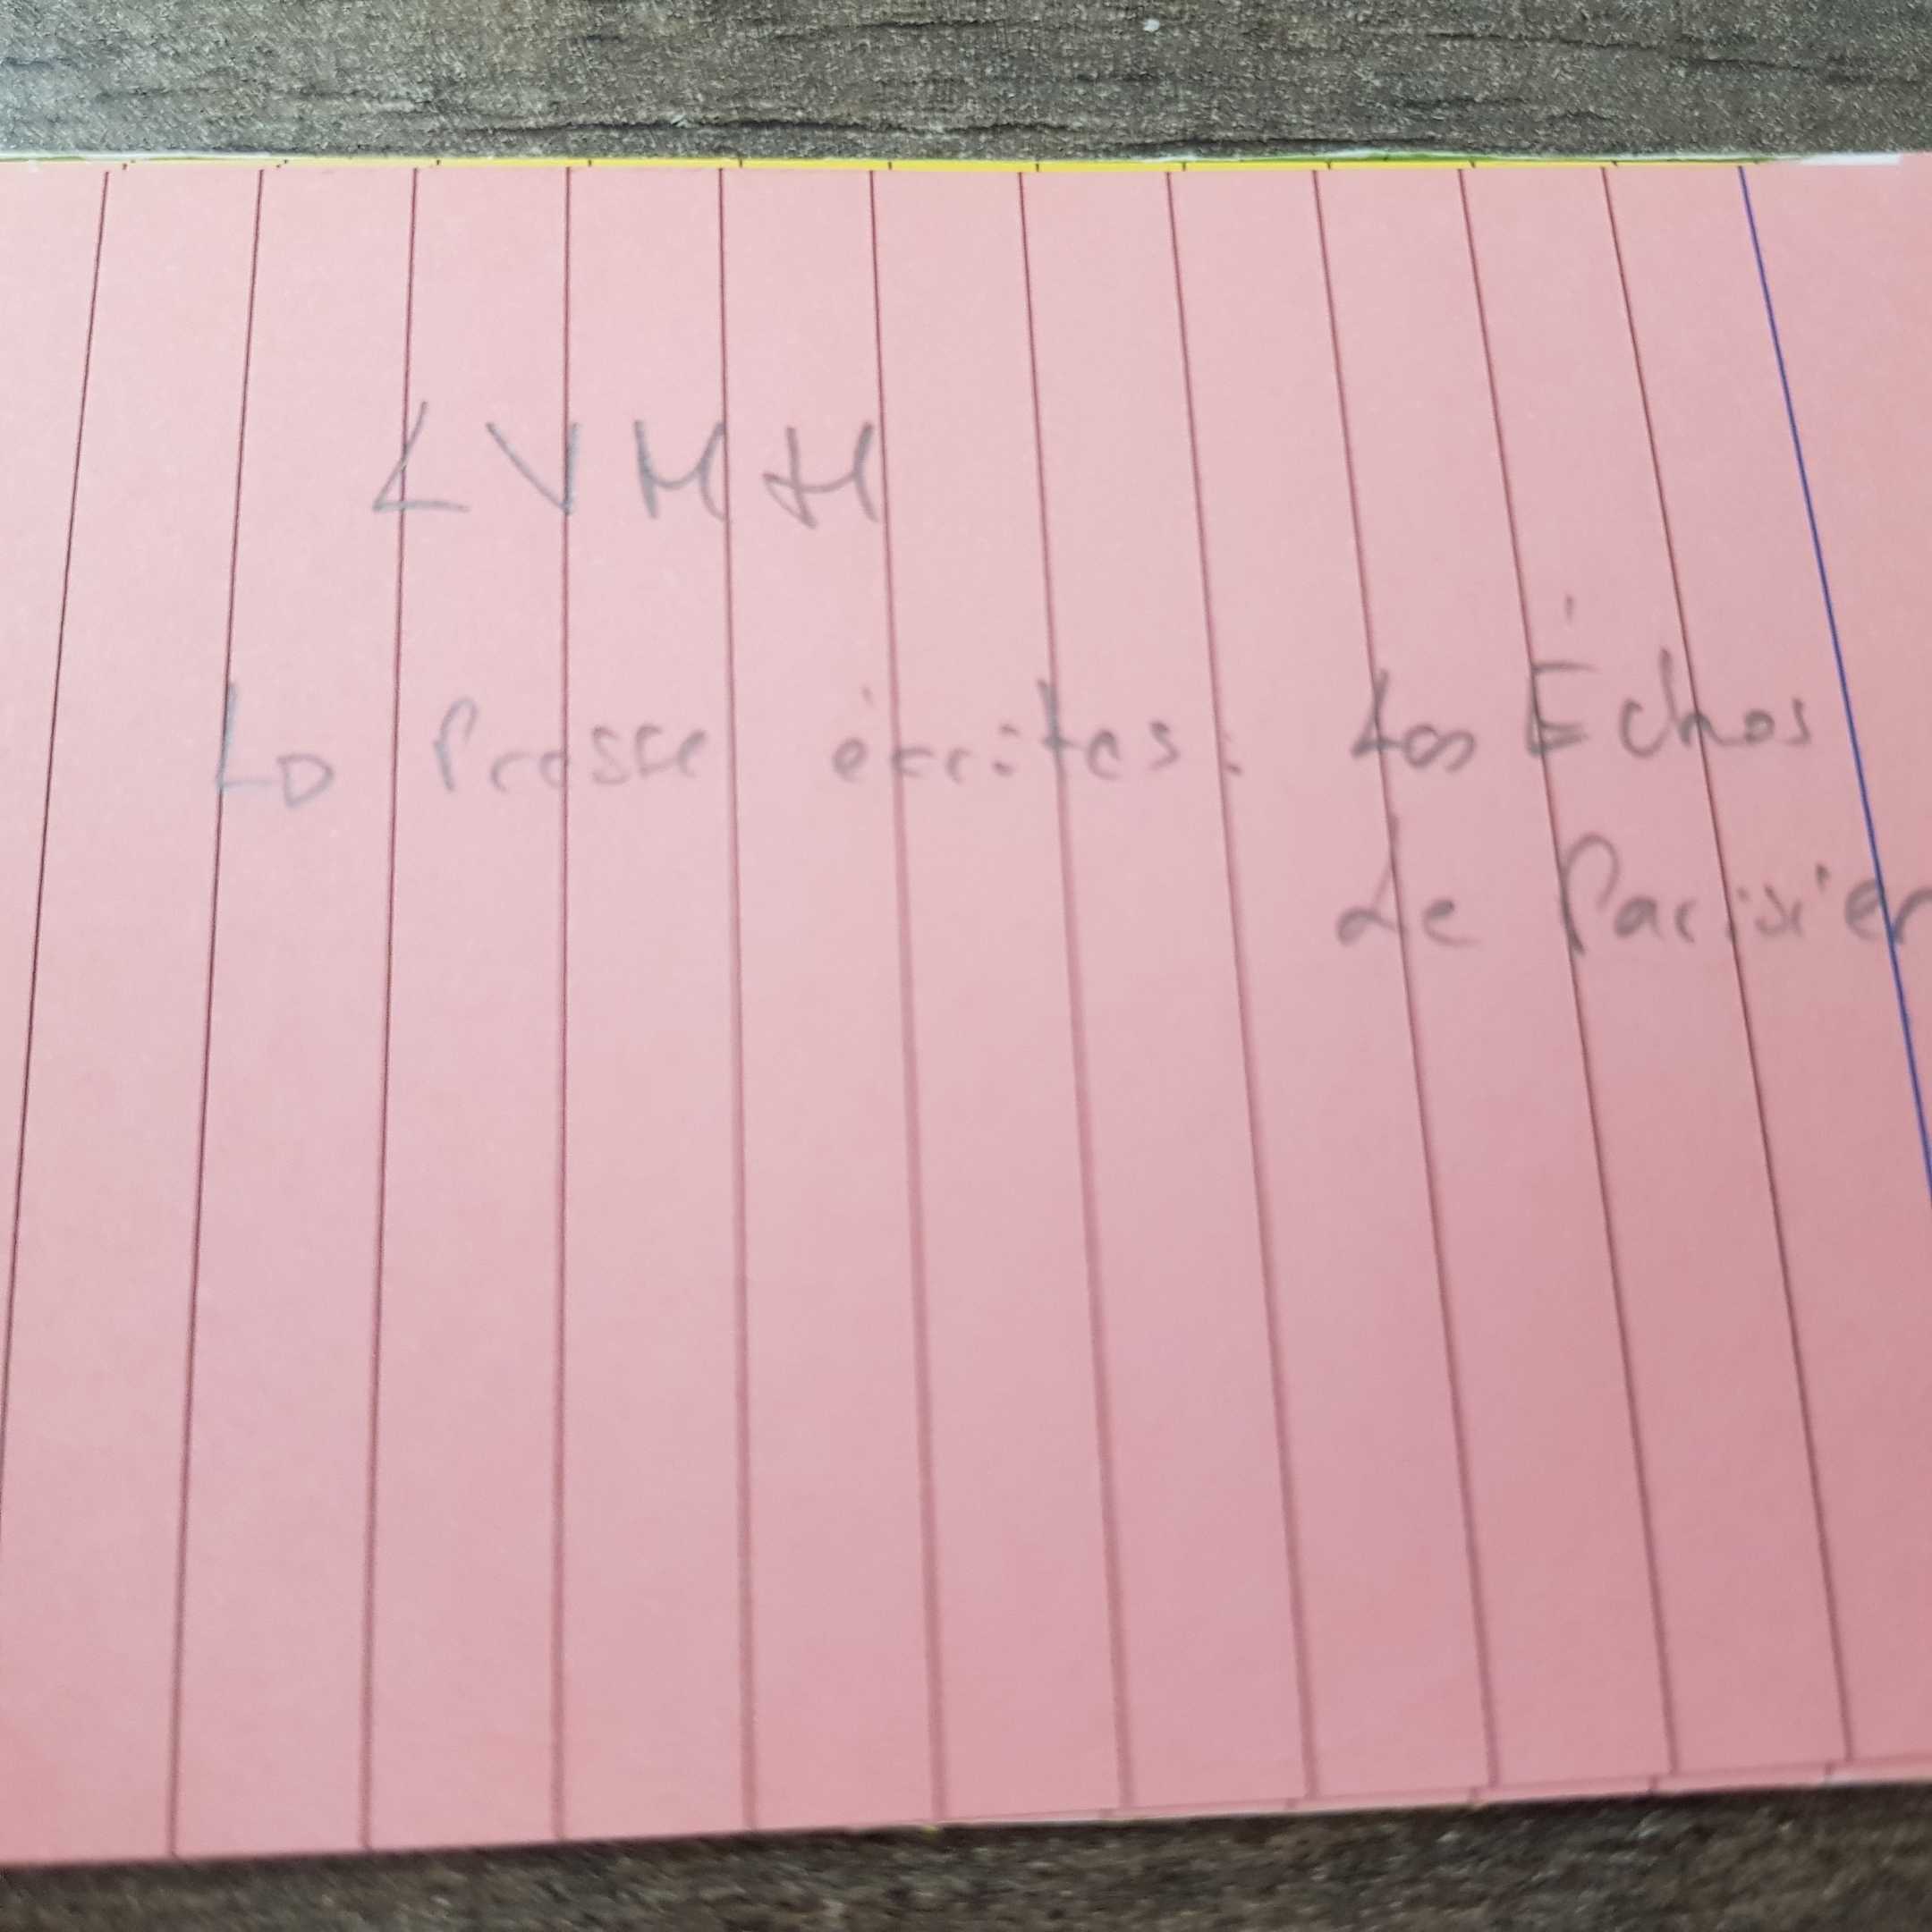 LVMH
La Presse écrites: Les Échos
Le Parisien